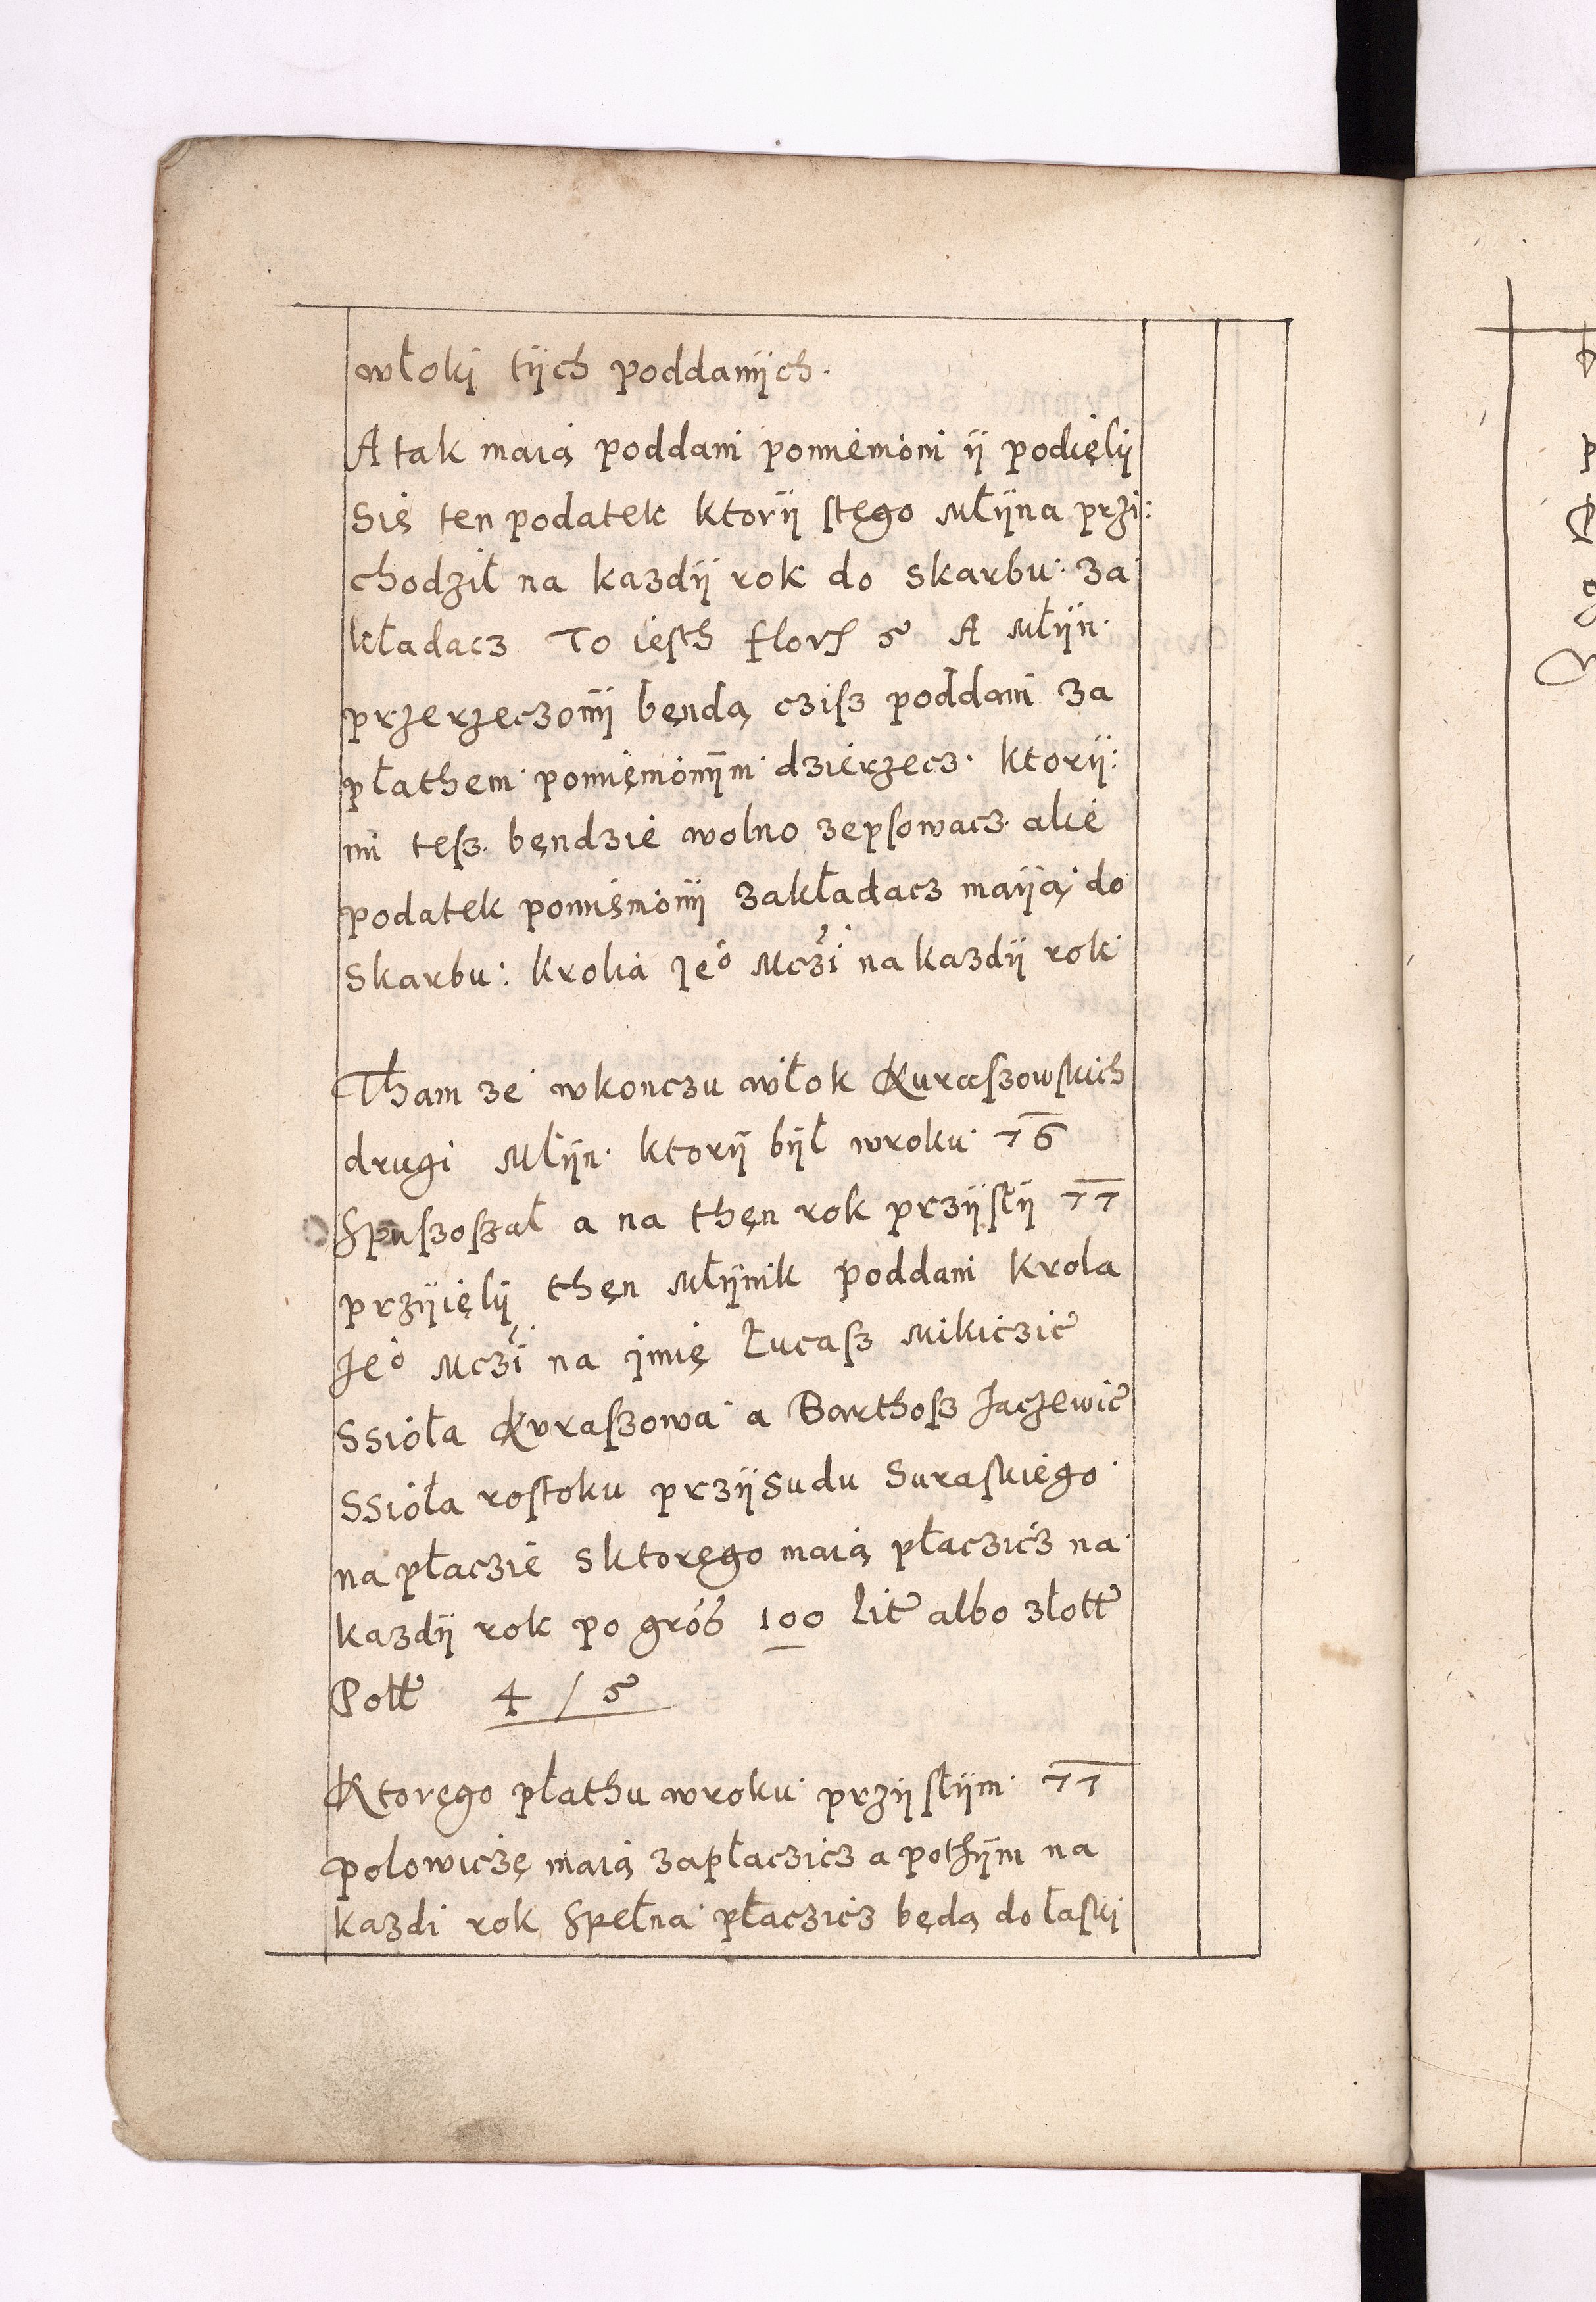 włoki tÿch poddanÿch.
A tak maią poddani pomiemoni ÿ podięlÿ
Się ten podatek ktorÿ stęgo Młÿna przi:
chodził na kazdÿ rok do skarbu. za
kładacz To iesth flor 5 A Młÿn.
przerzeczonÿ bęndą czisz poddani za
płathem pomięmionÿm dzierzecz. ktorÿ:
mi tesz. bęndzie wolno zepsowacz. alie
podatek pomięmionÿ zakładacz maÿą do
Skarbu: krolia Jeo Mczi na kazdÿ rok
Tham ze wkonczu włok Kuraszowskich
drugi Młÿn. ktorÿ bÿł wroku 76
Spuszoszał a na thęn rok przÿsłÿ 77
przÿięlÿ thęn Młÿnik poddani krola
Jeo Mczi na imię Łucasz Mikiczic
Ssioła Kuraszowa a Barthosz Jaczewic
Ssioła rostoku przÿsudu Suraskiego
na płaczie sktoręgo maią płaczicz na
kazdÿ rok po gros 100 lit albo złott
Poll 4 / 5
Ktoręgo płathu wroku przÿsłÿm 77
polowiczę maią zapłaczicz a pothÿm na
kazdi rok Spełna płaczicz będą do łaski